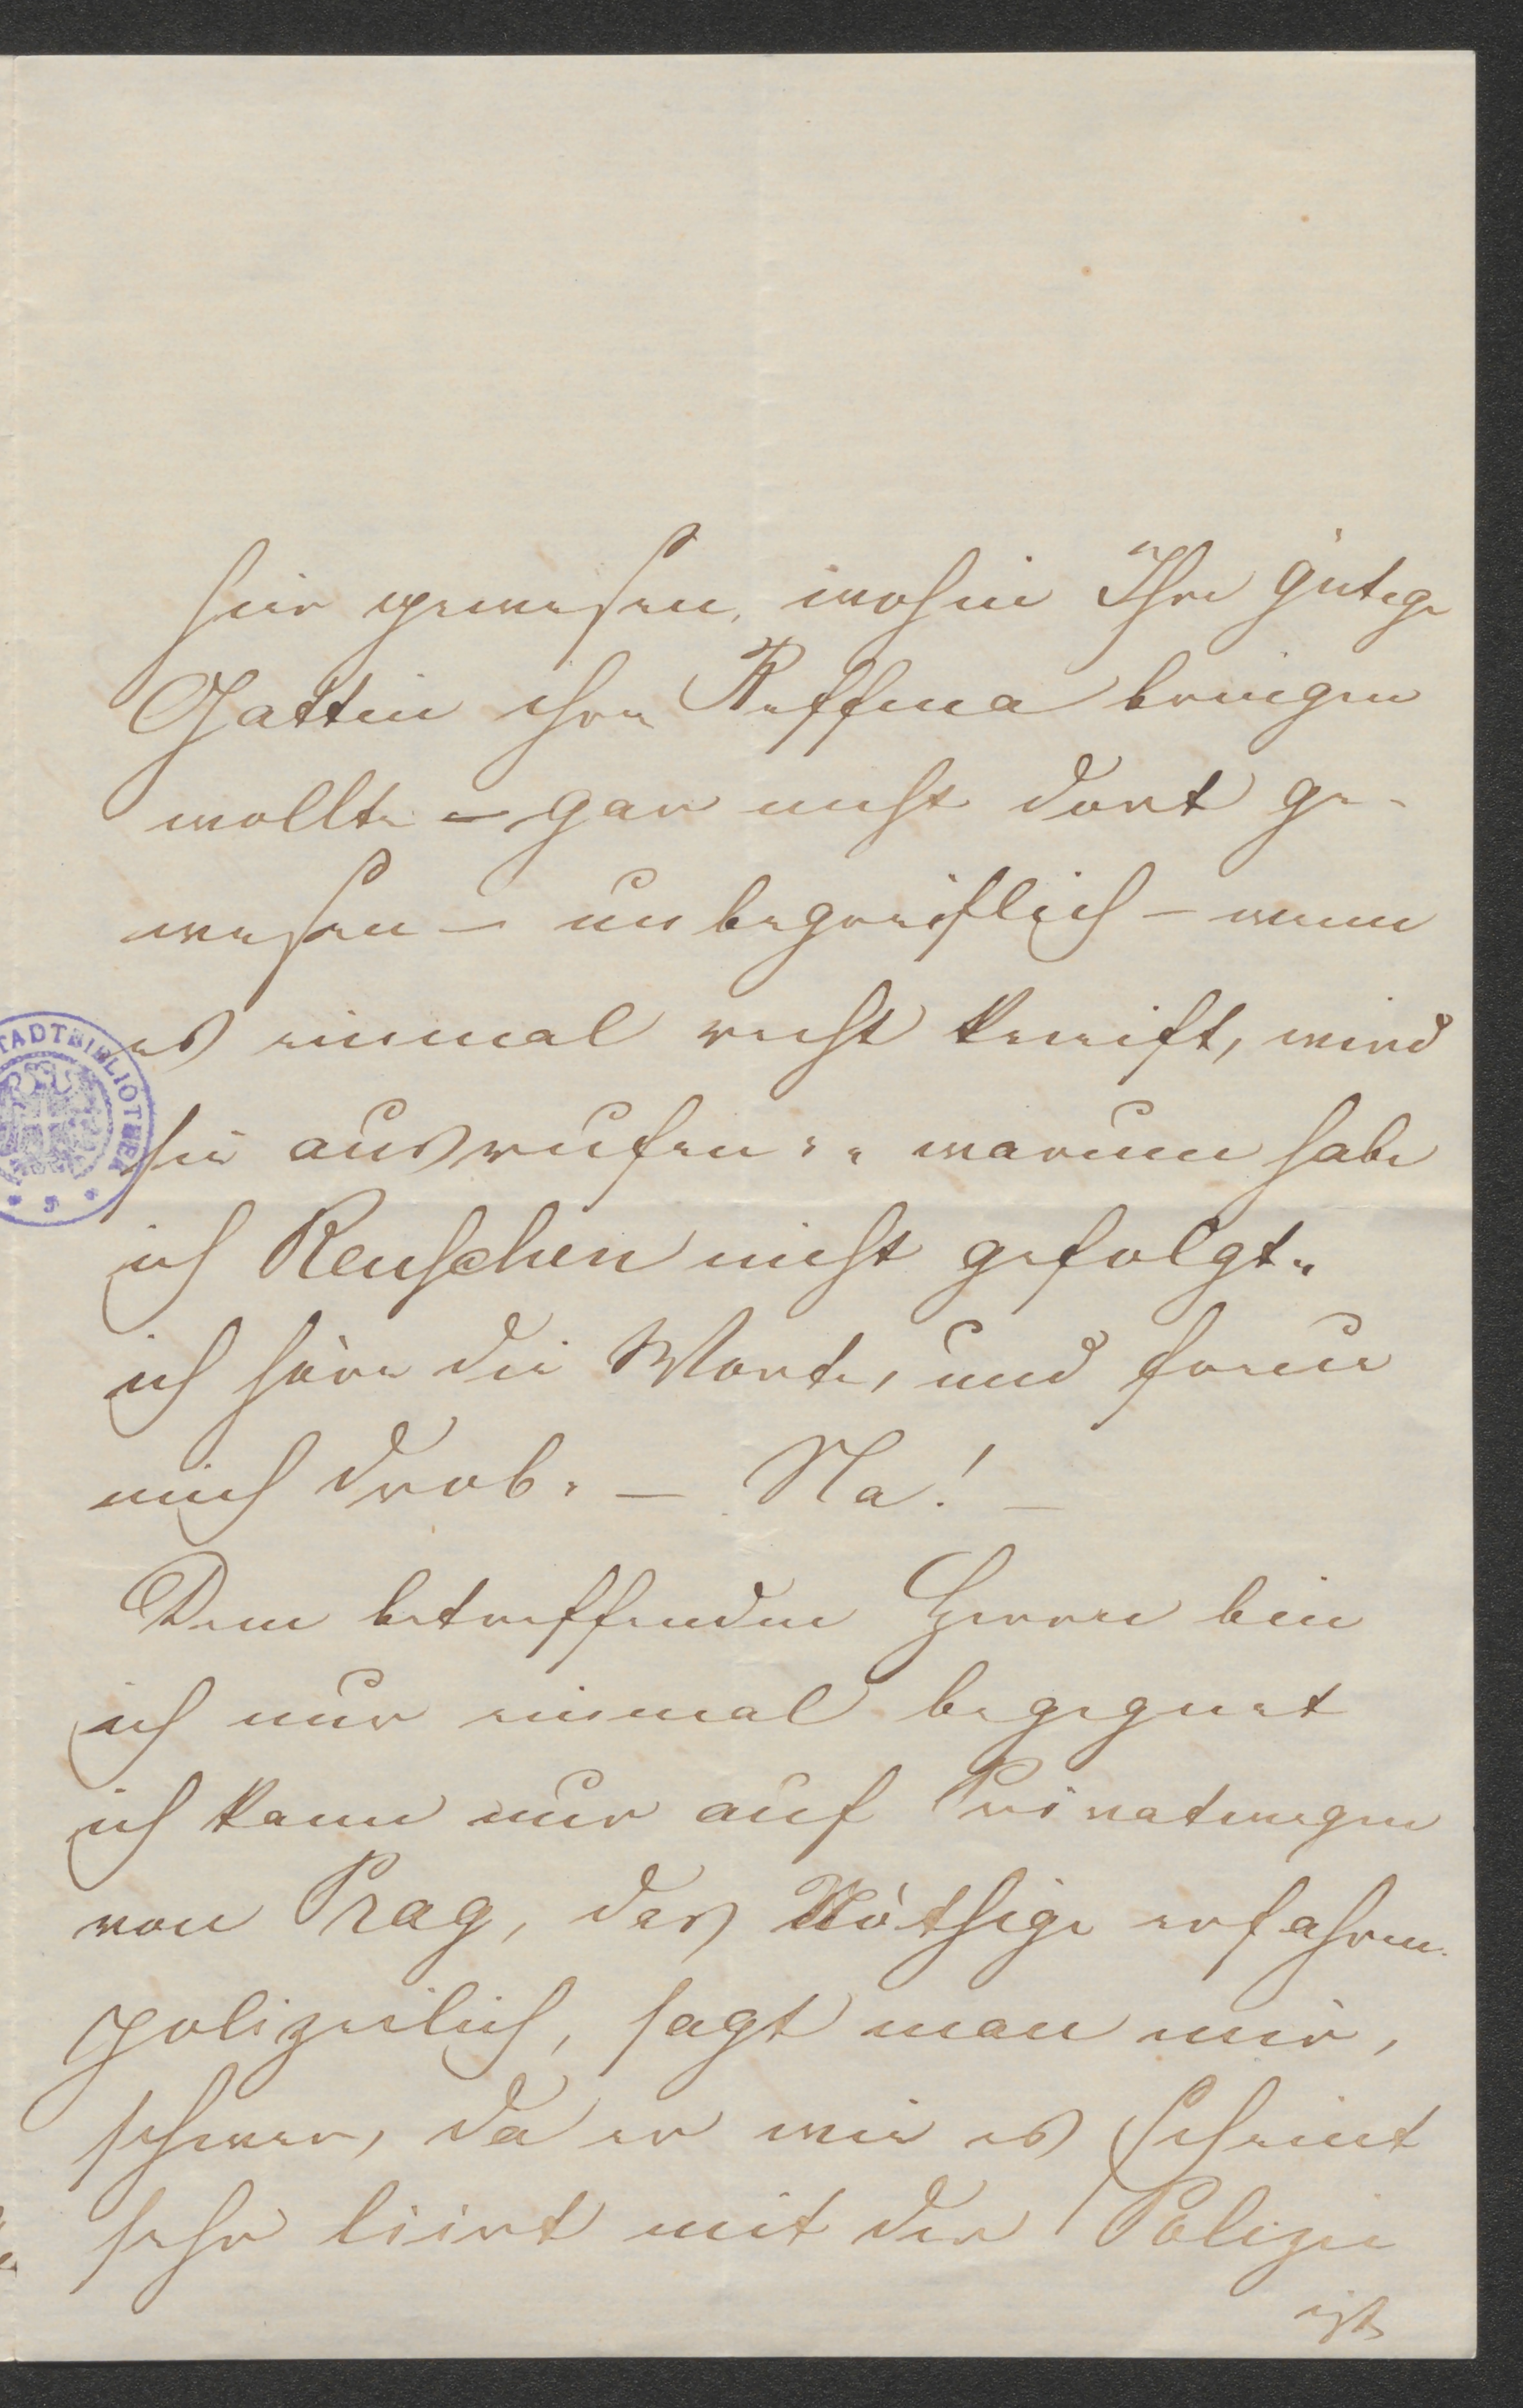 hier gewesen, wohin Ihre gütige
Gattin ihre Ressma bringen
wollte – gar nicht dort ge-
wesen – unbegreiflich – wenn
es einmal recht kneift, wird
sie ausrufen: „warum habe
ich Renschen nicht gefolgt“
ich höre die Worte, und freue
mich drob. – Na! –
Dem betreffenden Herren bin
ich nur einmal begegnet
ich kann nur auf Privatwegen
von Prag, das Nöthige erfahren.
polizeilich, sagt man mir,
schwer, da er wie es scheint
sehr liirt mit der Polizei
ist
STADTBIBLIOTHEK